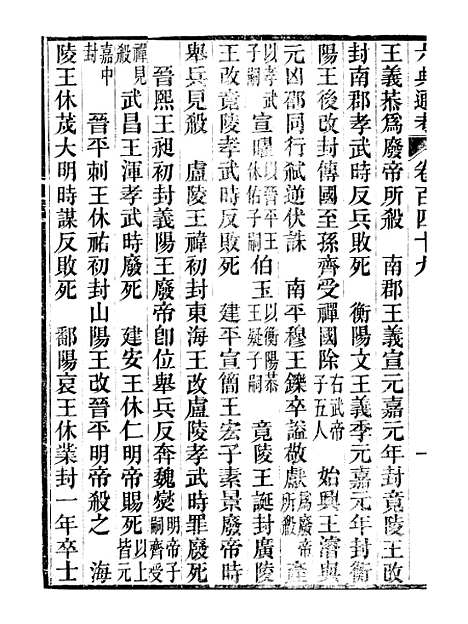 六典通考 卷百四十九 一
王義恭爲廢帝所殺 南郡王義宣元嘉元年封竟陵王改
封南郡孝武時反兵敗死 衡陽文王義季元嘉元年封衡
陽王後改封傳國至孫齊受禪國除右武帝子五人 始興王濬與
元凶劭同行弑逆伏誅 南平穆王鑠卒諡敬猷爲廢帝所殺
以孝武子嗣宣曜以晉平王休佑子嗣伯玉以衡陽恭王嶷子嗣 竟陵王誕封廣陵
王改竟陵孝武時反敗死 建平宣簡王宏子素景廢帝時
舉兵見殺 盧陵王褘初封東海王改盧陵孝武時罪廢死
晉熙王昶初封義陽王廢帝卽位舉兵反奔魏燮明帝子嗣齊受
禪見殺 武昌王渾孝武時廢死 建安王休仁明帝賜死以上皆元
嘉中封 晉平剌王休祐初封山陽王改晉平明帝殺之 海
陵王休茂大明時謀反敗死 鄱陽哀王休業封一年卒士